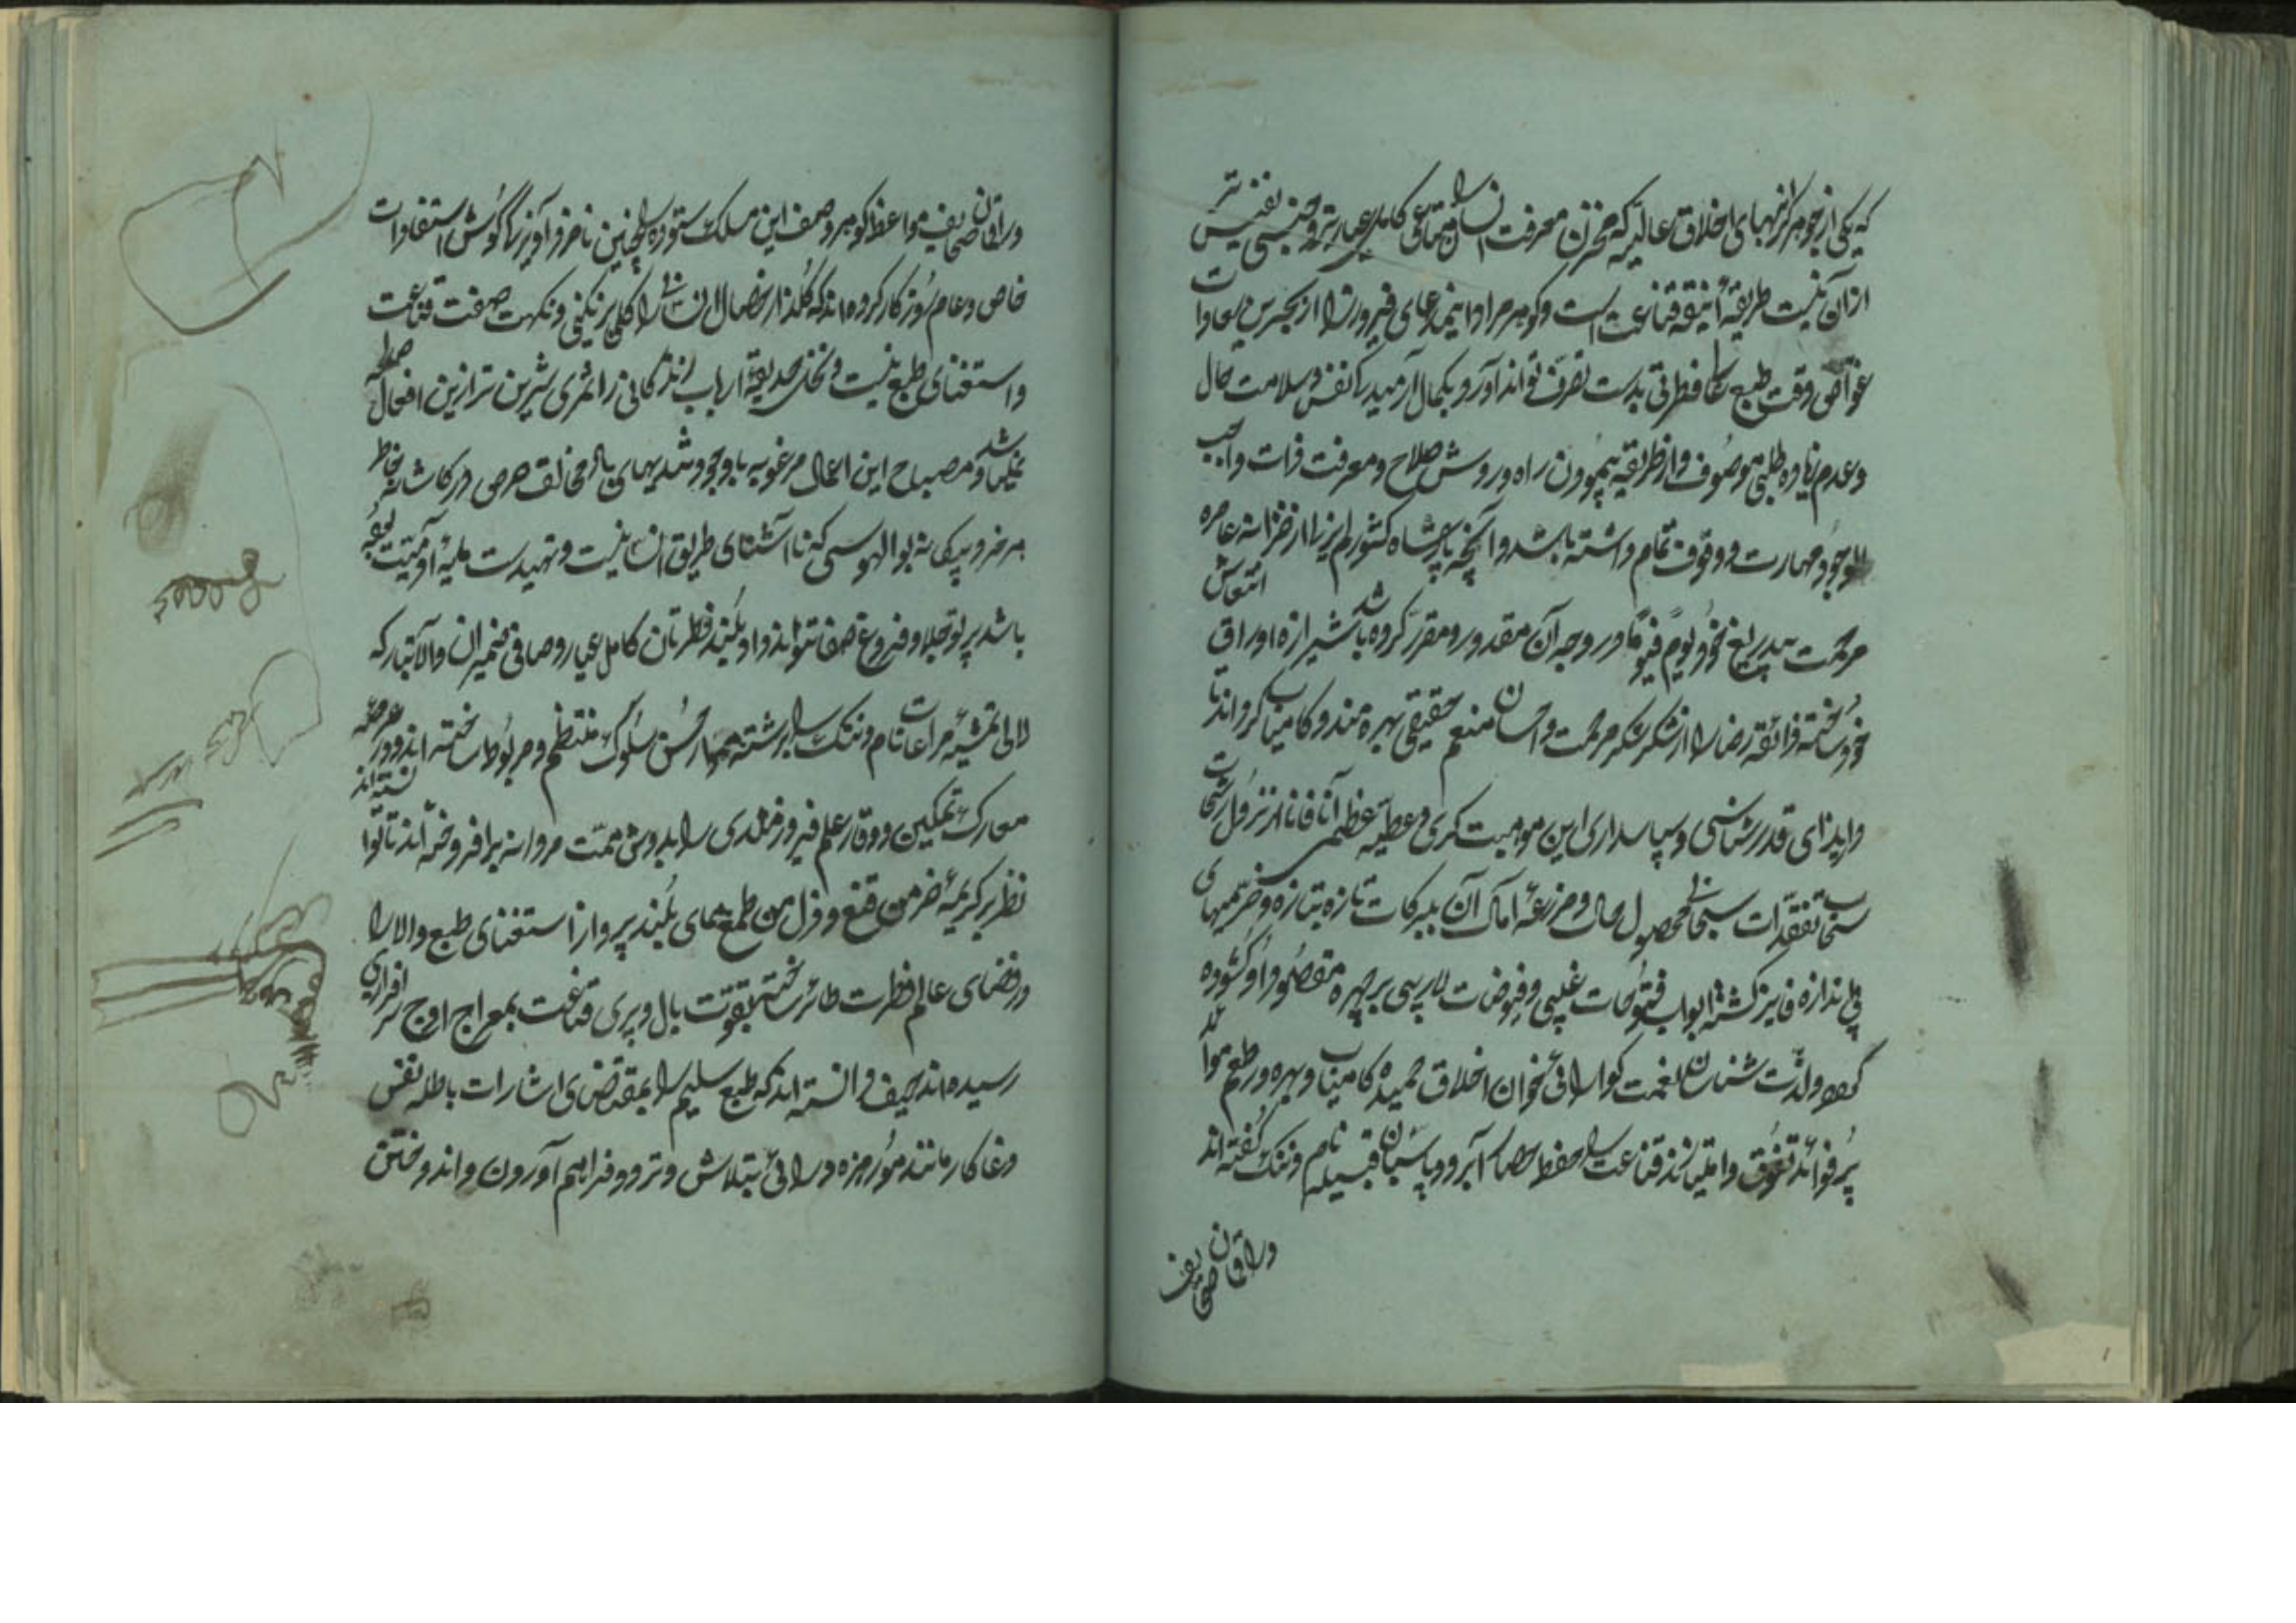 که یکی از جوهر گرانبهای اخلاق عالیه که مخزن معرفت انسان را متاعی کامل عیارتر و جنسی نفیس تر
ازان نیست طریقهٔ انیقه قناعت است و گوهر مراد این مدعای فیروز را از بحر بس سعادات
غواصی وقت طبع رسا فطرتی بدست تصرف تواند آورد و بکمال آرمیدگی نفس و سلامت حال
و عدم زیاده طلبی موصوف و از طریقه پیمودن راه و روش صلاح و معرفت ذات واجب
الوجود مهارت و وقوف تمام داشته باشد و آنچه پادشاه کشور لم یزل از خزانه عامره
مرحمت بیدریغ خود یوم فیوماً در وجه آن مقدور و مقرر کرده باشد شیرازه اوراق انتعاش
خود ساخته ذائقه رضا را از شکر شکر مرحمت و احسان منعم حقیقی بهره مند و کامیاب گرداند تا
وا پذرای قدرشناسی و سپاسداری این موهبت کبری و عطیه عظمی آناً فاناً از نزول رشحات
سحاب تفقدات سبحانی محصول حال و مزرعهٔ آمال آن ببرکات تازه بتازه و خرمیهای
بی اندازه فایز گشته ابواب فتوحات غیبی و فیوضات لاریبی بر چهره مقصود او گشوده
گردد و لذت شناسان نعمت گوارائی خوان اخلاق حمیده کامیاب و بهره ور طعم موائد
پر فوائد تفوق و امتیازند قناعت را حفظ حصار آبرو و پاسبان قبیله نام و ننگ گفته اند
وراقان صحایف
وراقان صحایف مواعظ گوهر وصف این مسلک ستوده را چنین نامزد آویزهٔ گوش استفادات
خاص و عام روزگار کرده اند که گلزار خصال انسانی را گلی برنگینی و نکهت صفت قناعت
و استغنای طبع نیست و نخل حدیقهٔ ارباب زندگانی را ثمری شیرین تر ازین افعال صالحه
نمیباشد و مصباح این اعمال مرغوبه با وجود تندیهای باد مخالف حرص در کاشانه خاطر
هرزه و سبک بوالهوسی که ناآشنای طریق انسانیت و تهیدست حلیهٔ آدمیت بوده
باشد پرتو جلا و فروغ صفا نتواند داد و بلند فطرتان کامل عیار و صافی ضمیران والاتبار که
لالی تمشیهٔ مراعات نام و ننگ را برشته مهار حسن سلوک منتظم و مربوط ساخته اند و در عرصهٔ
معارک تمکین و وقار علم فیروزمندی را بدوش همت مردانه برافروخته اند تا توانسته اند
نظر بر کریمهٔ عز من قنع و ذل من طمع همای بلند پرواز استغنای طبع والا را
در فضای عالم فطرت طائر ساخته بقوت بال و پری قناعت بمعراج اوج سرافرازی
رسیده اند حیف دانسته اند که طبع سلیم را بمقتضای اشارات باطله نفس
دغا کار مانند مور هرزه درائی بتلاش و تردد فراهم آوردن و اندوختن